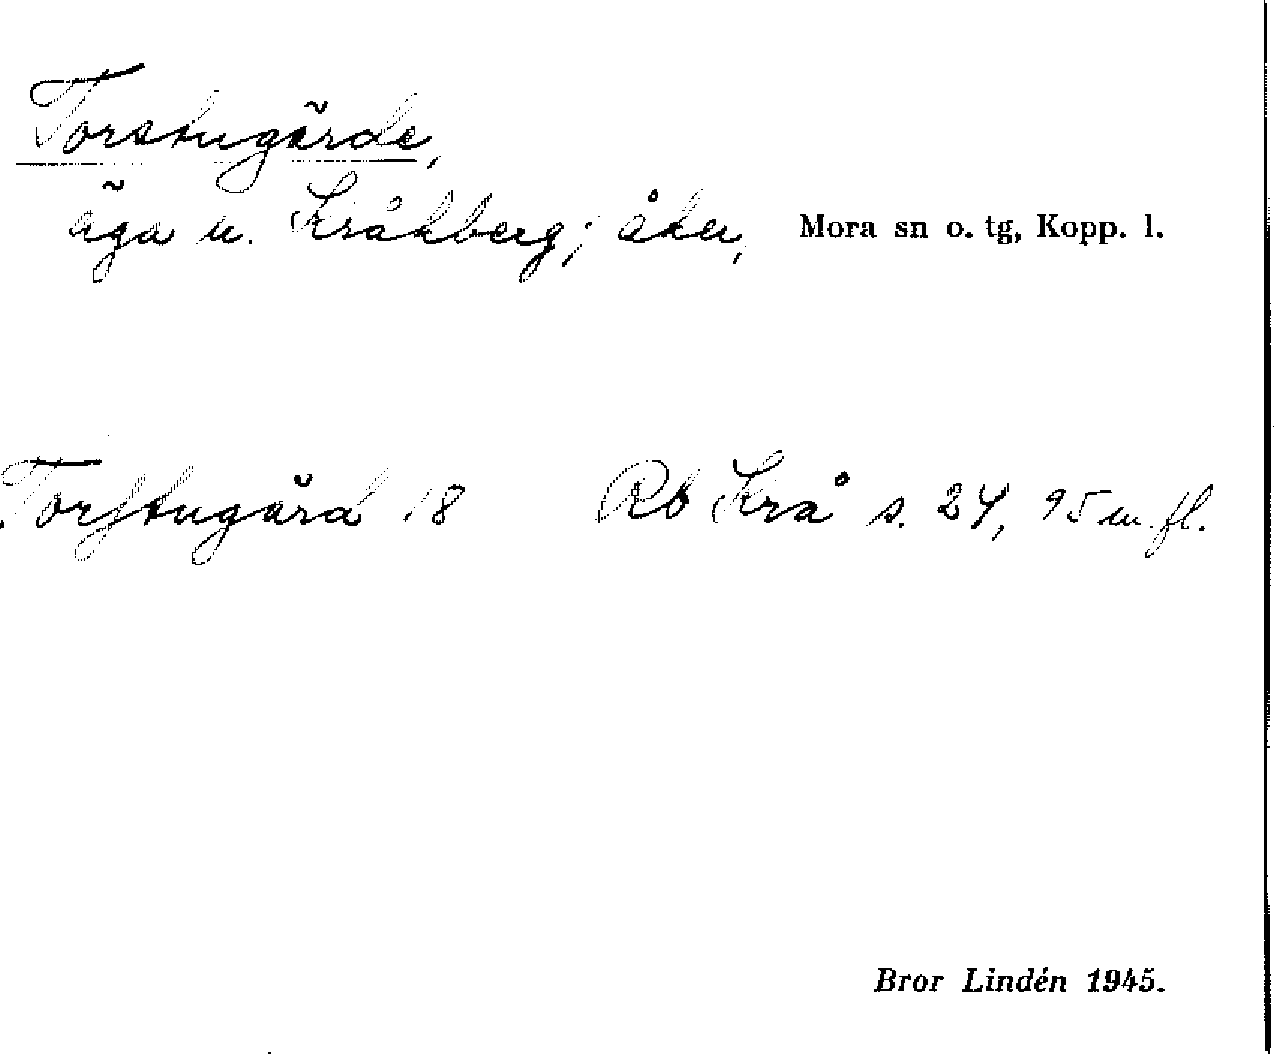 Torstugärde,
äga u. Kråkberg; åker, Mora sn o. tg, Kopp. l.
Torſtugärd 18 Rb Krå s. 24, 95 m. fl.
Bror Lindén 1945.